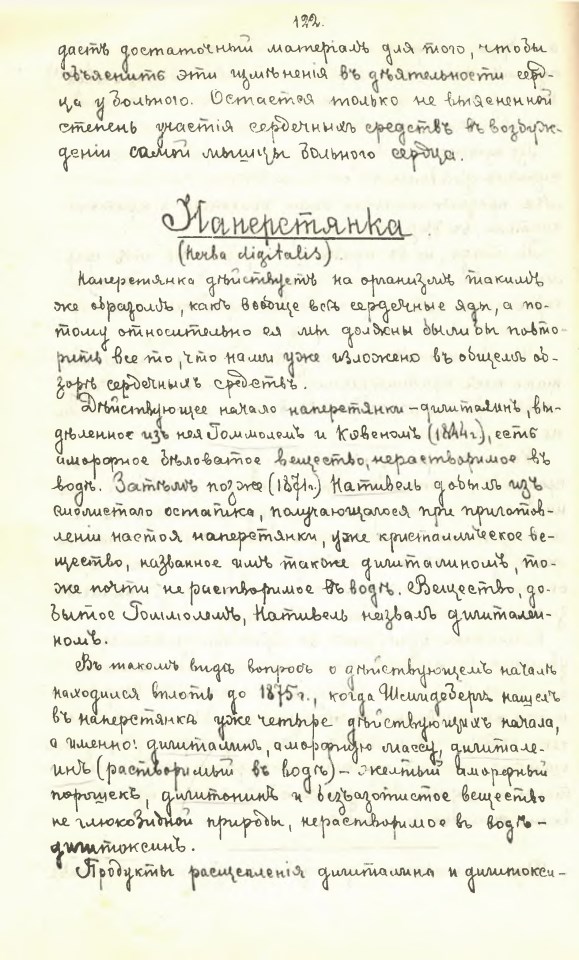 122.
дастъ достаточный матеріалъ для того, чтобы
объяснить эти измѣненія въ дѣятельности серд-
ца у больного. Остается только не выясненной
степень участія сердечныхъ средствъ въ возбуж-
деніи самой мышцы больного сердца.
Наперстянка
(Herba digitalis).
Наперстянка дѣйствуетъ на организмъ такимъ
же образомъ, какъ вообще всѣ сердечные яды, а по-
тому относительно ея мы должны были бы повто-
рить все то, что нами уже изложено въ общемъ об-
зорѣ сердечныхъ средствъ.
Дѣйствующее начало наперстянки – дигиталинъ, вы-
дѣленное изъ нея Гоммолемъ и Кевеномъ (1844г.), есть
аморфное бѣловатое вещество, нерастворимое въ
водѣ. Затѣмъ позже (1871г.) Нативель добылъ изъ
смолистаго остатка, получающагося при приготов-
леніи настоя наперстянки, уже кристаллическое ве-
щество, названное имъ также дигиталиномъ, то-
же почти не растворимое въ водѣ. Вещество, до-
бытое Гоммолемъ, Нативель назвалъ дигиталеи-
номъ.
Въ такомъ видѣ вопросъ о дѣйствующемъ началѣ
находился вплоть до 1875г., когда Шмидебергъ нашелъ
въ наперстянкѣ уже четыре дѣйствующихъ начала,
а именно: дигиталинъ, аморфную массу, дигитале-
инъ (растворимый въ водѣ) – желтый аморфный
порошекъ, дигитонинъ и безъазотистое вещество
не глюкозидной природы, нерастворимое въ водѣ –
дигитоксинъ.
Продукты расщепленія дигиталина и дигитокси-